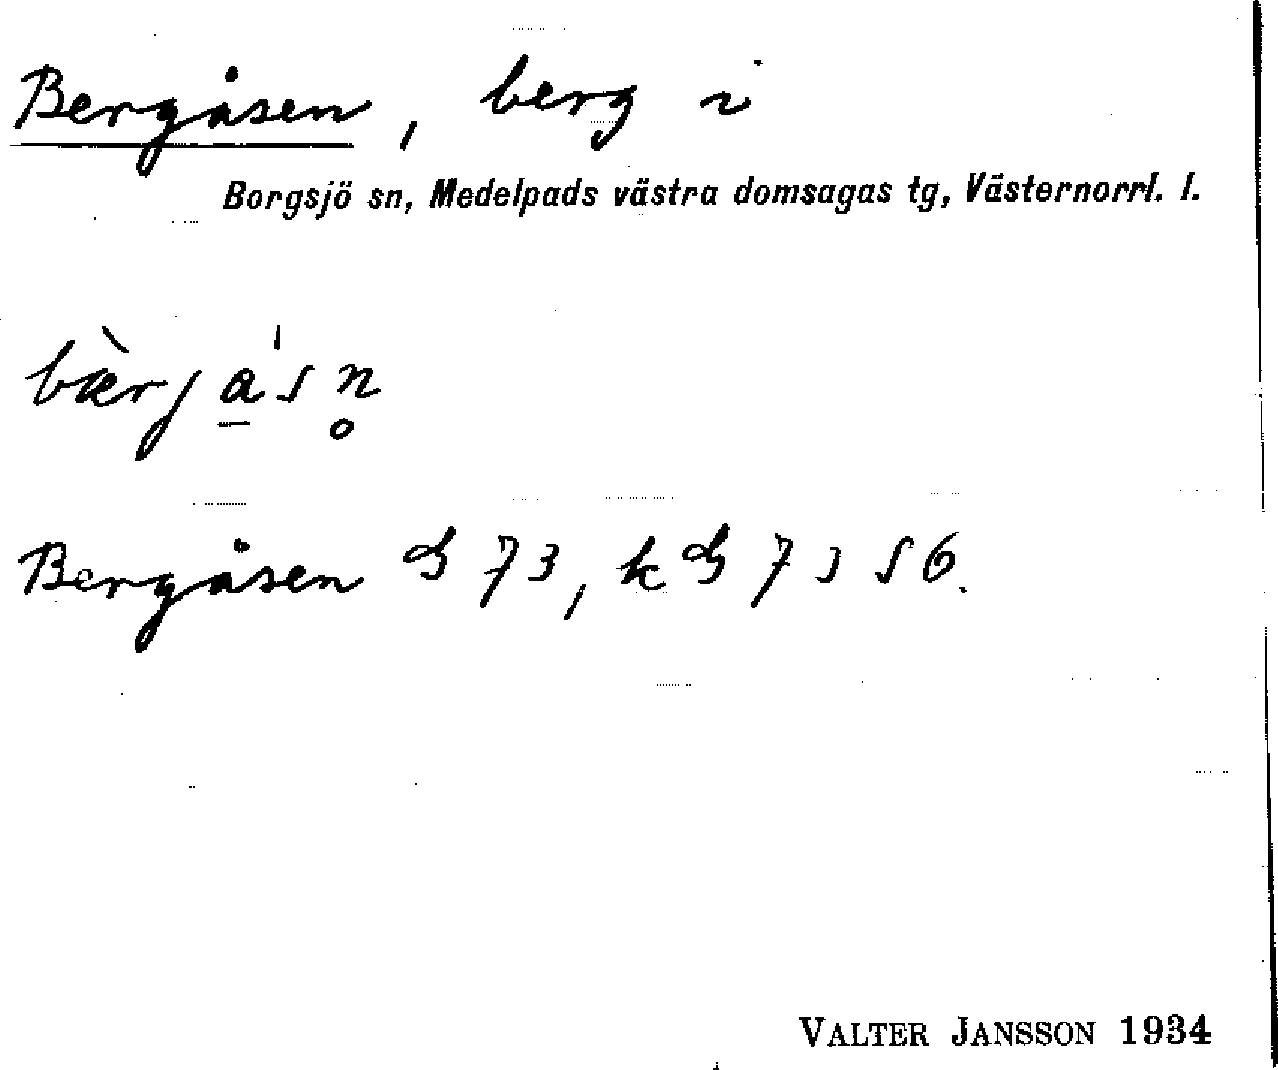 Bergåsen, berg i
Borgsjö sn, Medelpads västra domsagas tg, Västernorrl. l.
bæ̀rja̱ˈsn̥
Bergåsen GS 73, k GS 73 S6.
VALTER JANSSON 1934